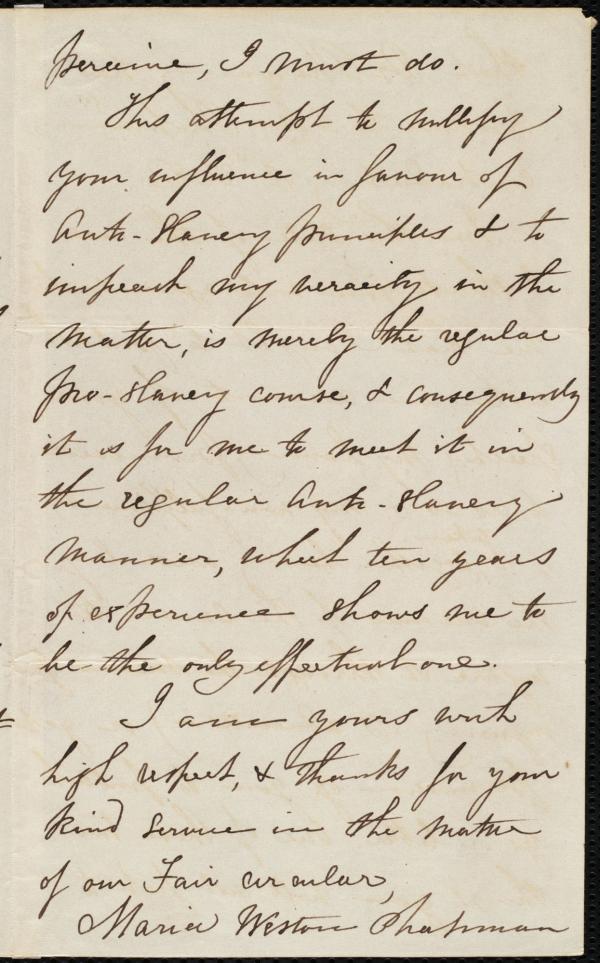 perceive, I must do.
This attempt to nullify
your influence in favour of
Anti-Slavery principles & to
impeach my veracity in the
matter, is merely the regular
pro-slavery course, & consequently
it is for me to meet it in
the regular Anti-slavery
manner, which ten years
of experience shows me to
be the only effectual one.
I am yours with
high respect, & thanks for your
kind service in the matter
of our Fair circular,
Maria Weston Chapman